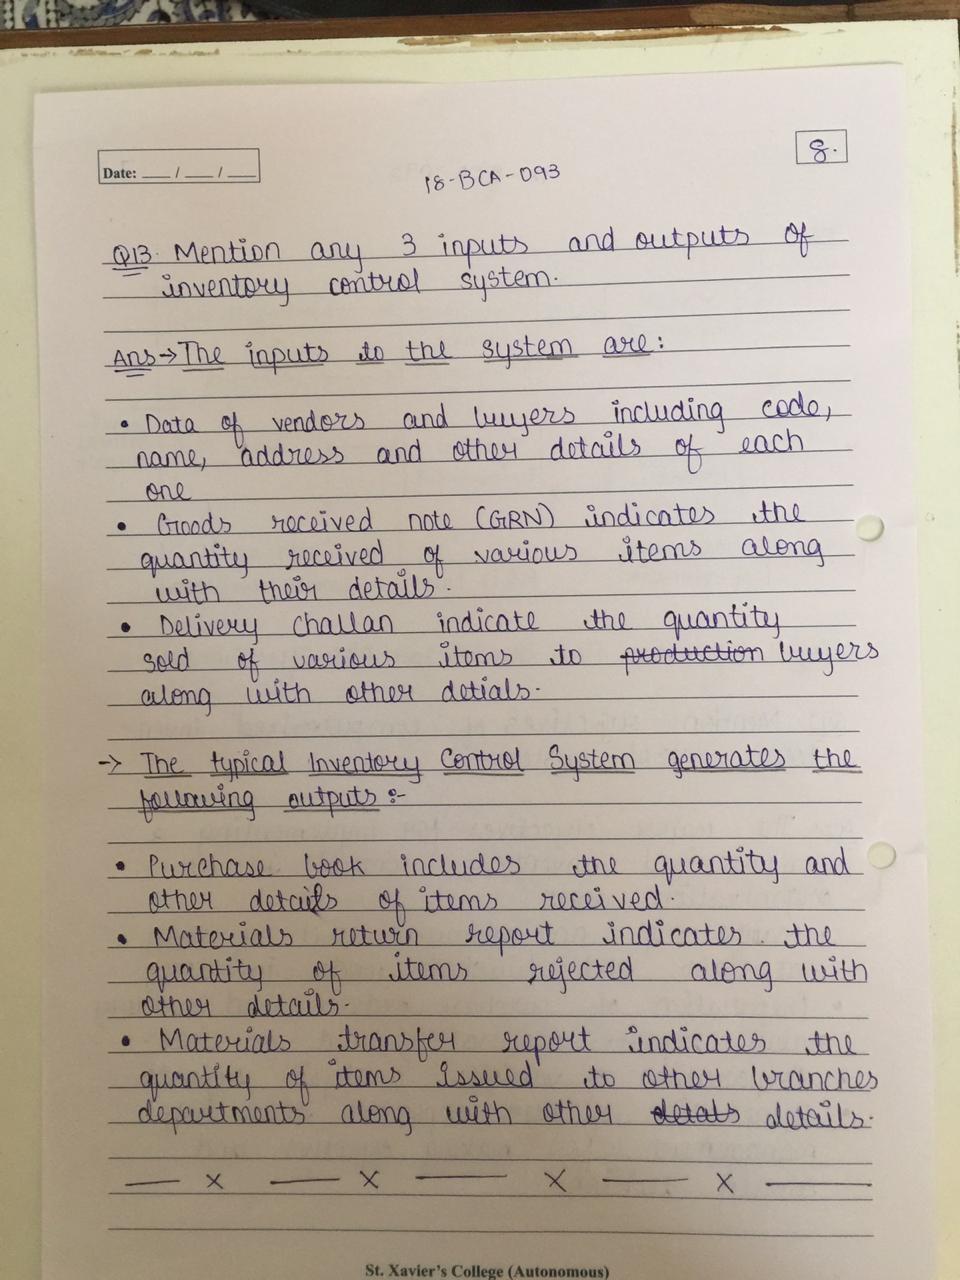 Date: ___ / ___ / ___
8.
18-BCA-093
Q13. Mention any 3 inputs and outputs of
inventory control system.
Ans→ The inputs to the system are:
• Data of vendors and buyers including code,
name, address and other details of each
one
• Goods received note (GRN) indicates the
quantity received of various items along
with their details.
• Delivery challan indicate the quantity
sold of various items to production buyers
along with other detials.
→ The typical Inventory Control System generates the
following outputs :-
• Purchase book includes the quantity and
other details of items received.
• Materials return report indicates the
quantity of items rejected along with
other details.
• Materials transfer report indicates the
quantity of items issued to other branches
departments along with other detals details.
— x — x — x — x —
St. Xavier's College (Autonomous)